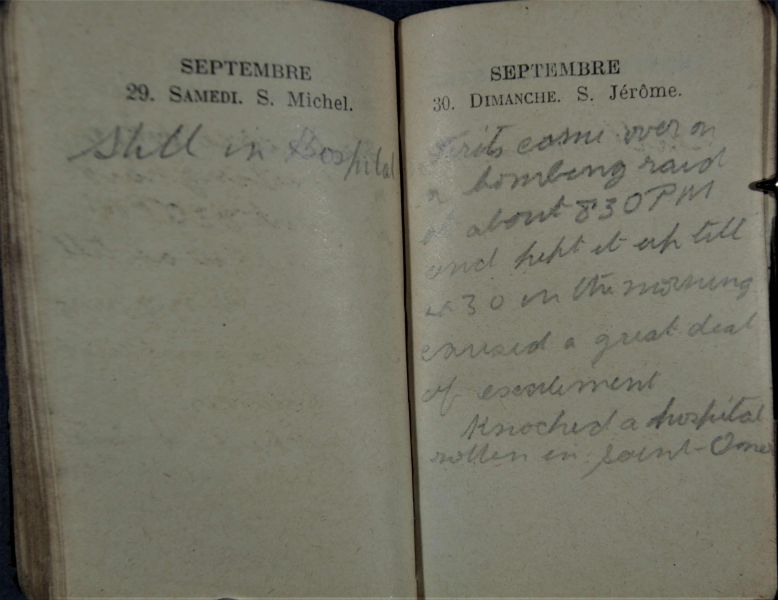 SEPTEMBRE
29. SAMEDI. S. Michel.
Still in Hospital
SEPTEMBRE
30. DIMANCHE. S. Jérôme.
Frits come over on
a bombing raid
at about 8 30 PM
and kept it up till
30 in the morning
caused a great deal
of excitement
Knocked a hospital
rotten in Saint-Omer